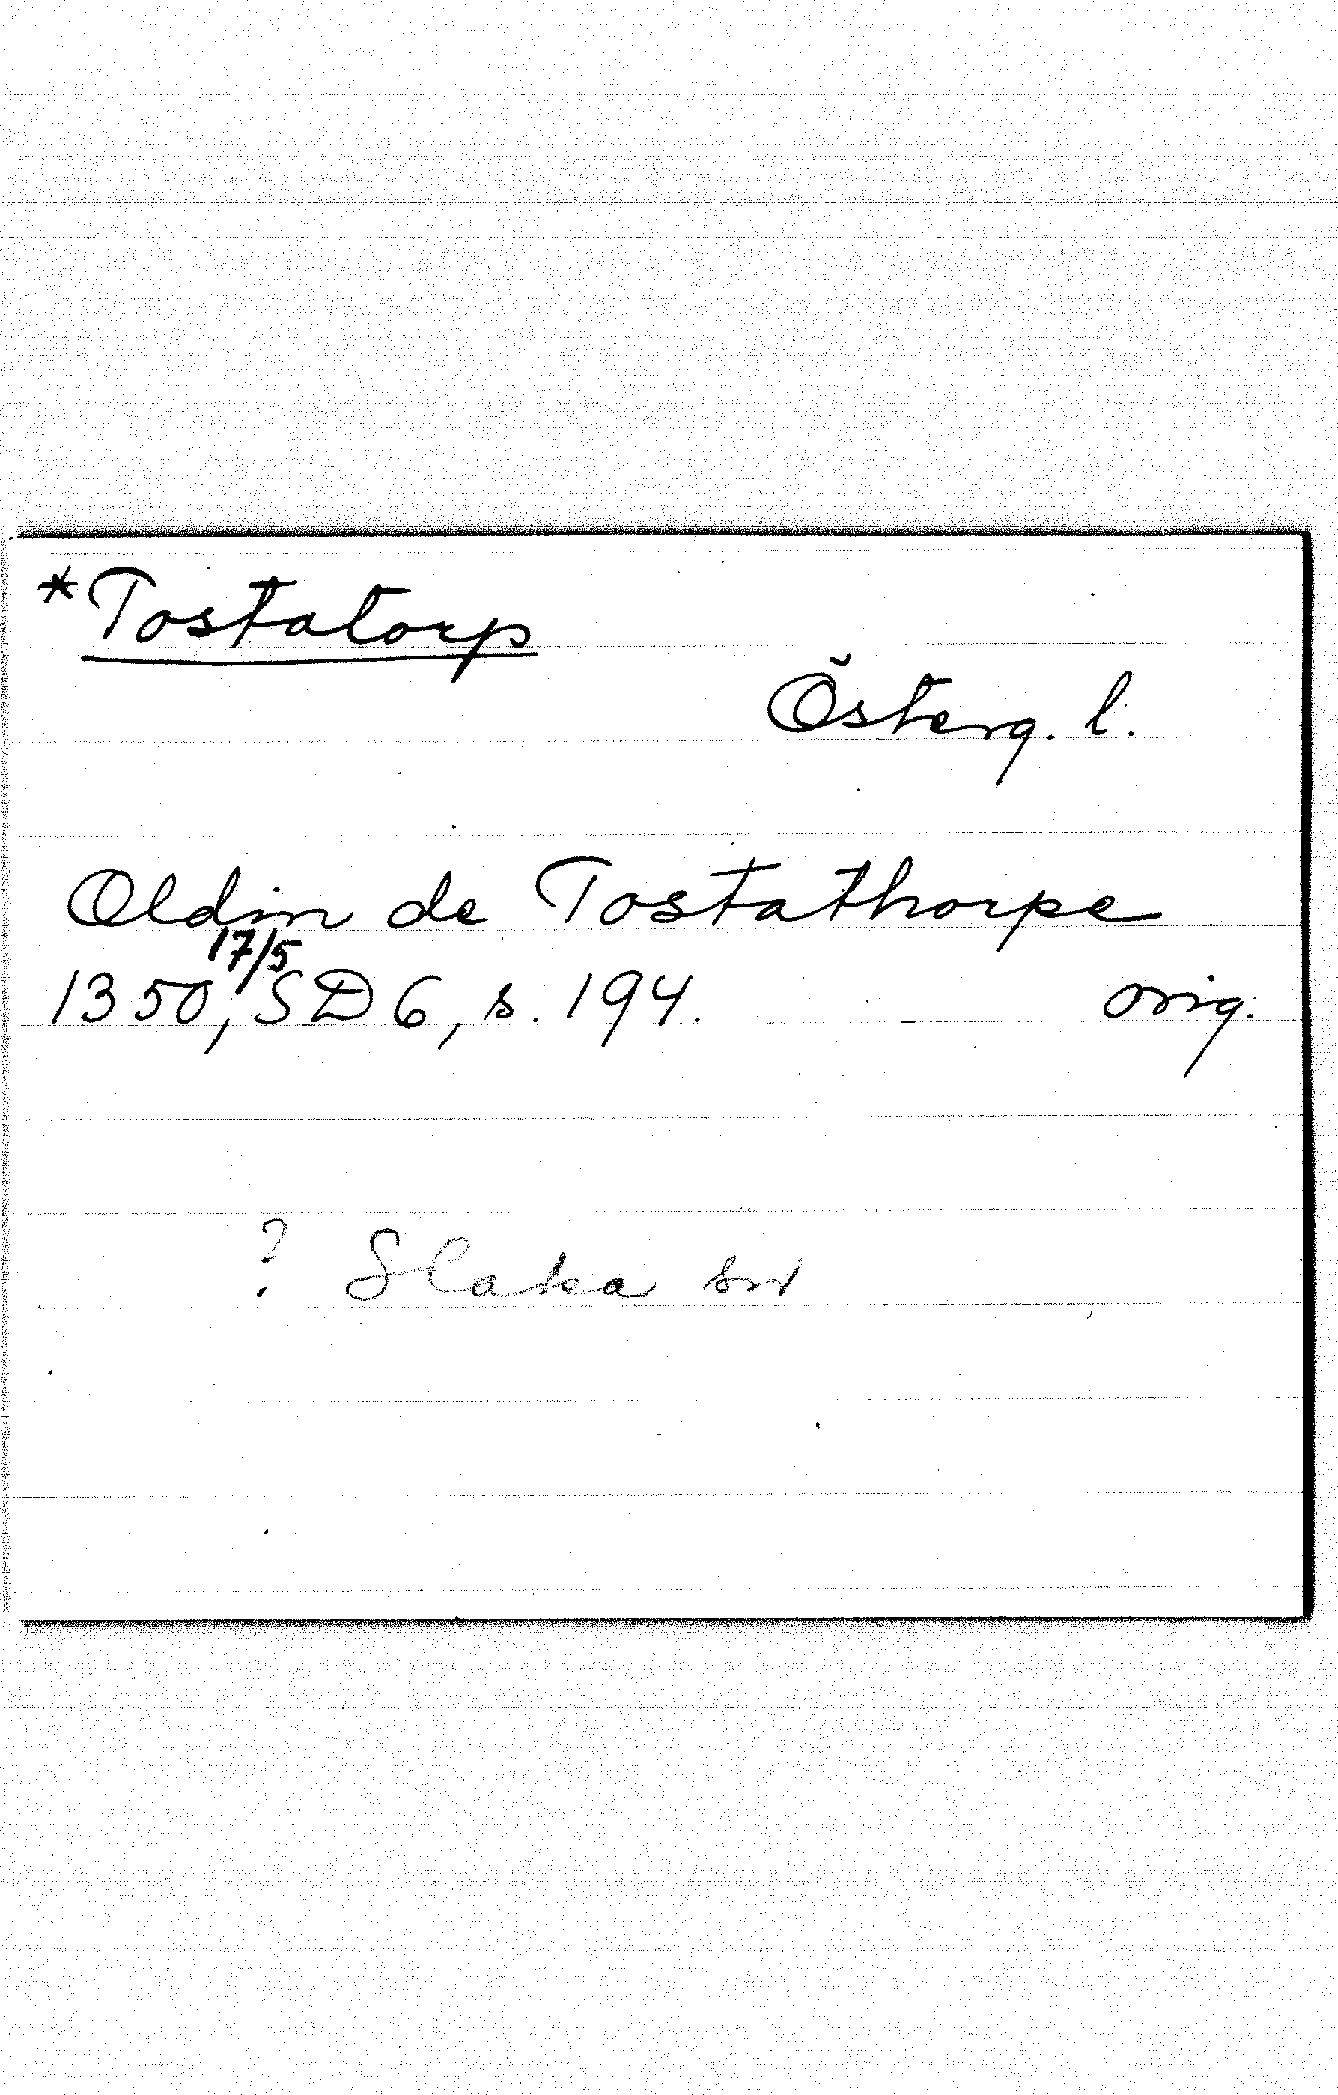 *Tostatorp
Österg. l.
Oldin de Tostathorpe
1350 17/5, SD 6, s. 194. orig.
? Slaka sn